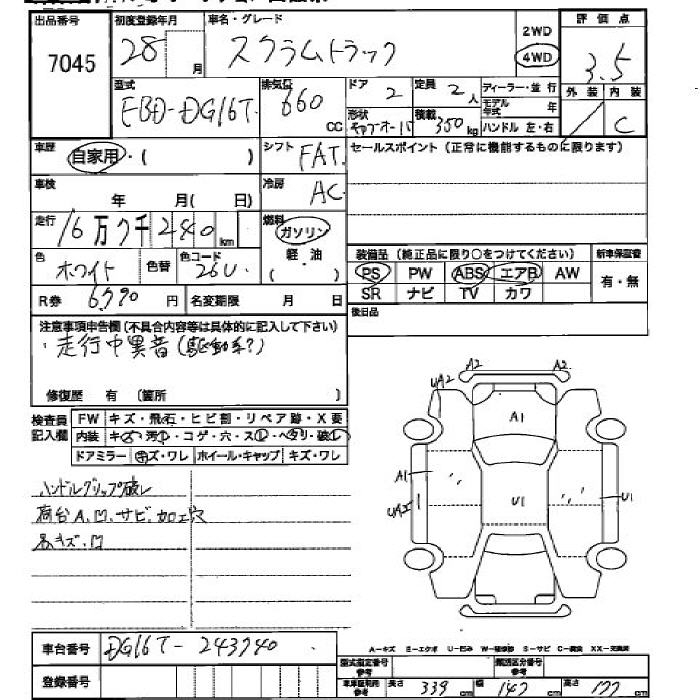 出品番号 7045
初度登録年月 28 月
車名・グレード スクラムトラック
2WD
4WD
評価点 3.5
外装 内装 C
型式 EBD-DG16T
排気量 660 CC
ドア 2
定員 2 人
形状 キャブオーバ
積載 350 kg
ディーラー・並行
モデル年式 年
ハンドル 左・右
車歴 自家用・( )
シフト FAT
セールスポイント (正常に機能するものに限ります)
車検 年 月( 日)
冷房 AC
走行 16万7千240 km
燃料 ガソリン
軽油
( )
色 ホワイト 色替 色コード 26U
装備品 (純正品に限り○をつけてください) 新車保証書
PS PW ABS エアB AW 有・無
SR ナビ TV カワ
R券 6,790 円 名変期限 月 日
後日品
注意事項申告欄 (不具合内容等は具体的に記入して下さい)
・走行中異音(駆動系?)
修復歴 有 (箇所 )
検査員記入欄
FW キズ・飛石・ヒビ割・リペア跡・X要
内装 キズ・汚れ・コゲ・穴・スレ・ヘタリ・破れ
ドアミラー キズ・ワレ ホイール・キャップ キズ・ワレ
ハンドルグリップ破レ
荷台A.凹.サビ.加工穴
小キズ・凹
A2 A2
UA2
A1
A1
U1
U1
UA2
A-キズ E-エクボ U-凹ミ W-補修跡 S-サビ C-腐食 XX-交換済
車台番号 DG16T-243740
登録番号
型式指定番号 参考
類別区分番号 参考
車体証明用 参考 長さ 339 cm 幅 147 cm 高さ 177 cm